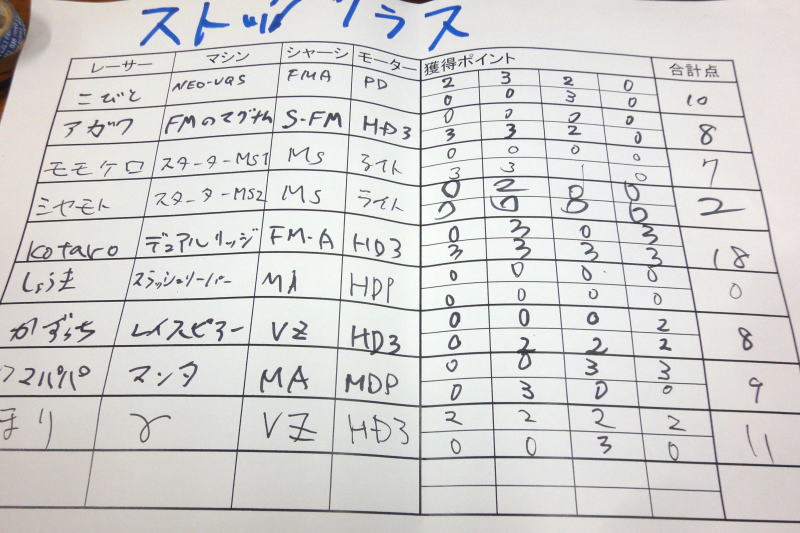 ストッククラス
レーサー マシン シャーシ モーター 獲得ポイント 合計点
こびと NEO-VQS FMA PD 2 3 2 0 10
0 0 3 0
アガワ FMのマグナム S-FM HD3 0 0 0 0 8
3 3 2 0
モモケロ スターターMS1 Ms ライト 0 0 0 0 7
3 3 1 0
ミヤモト スターターMS2 Ms ライト 0 2 0 0 2
0 0 0 0
kotaro デュアルリッジ FM-A HD3 0 3 0 3 18
3 3 3 3
しょうま スラッシュリーパー MA HDP 0 0 0 0 0
0 0 0 0
かずぅち レイスピアー VZ HD3 0 0 0 2 8
0 2 2 2
マンタ MA MDP 0 0 3 3 9
コパパ 0 3 0 0
まり γ VZ HD3 2 2 2 2 11
0 0 3 0